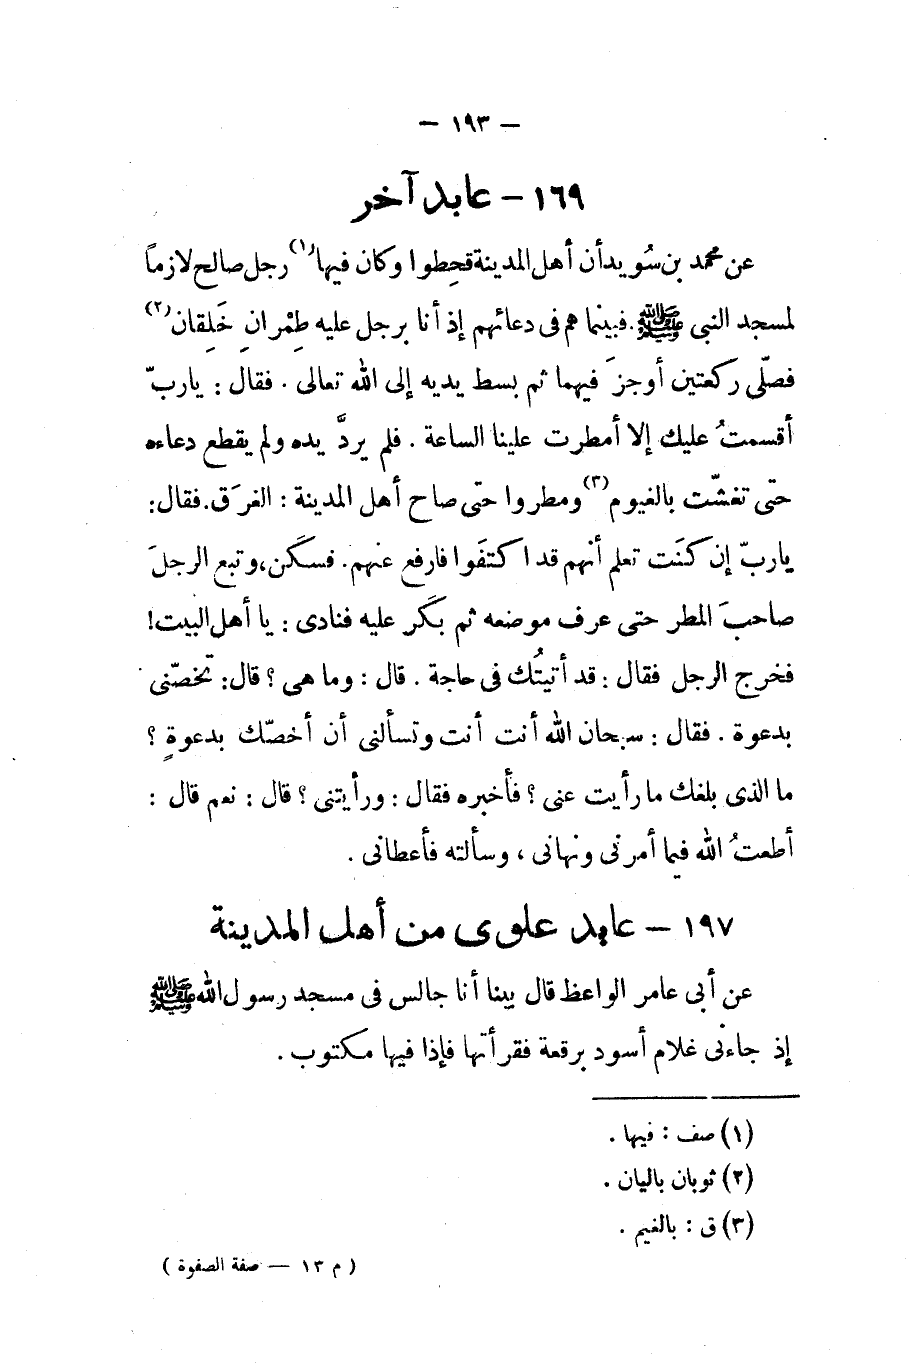 — ١٩٣ —
١٦٩ — عابد آخر
عن محمد بن سُويد أن أهل المدينة قحِطوا وكان فيها(١) رجل صالح لازماً
لمسجد النبي ﷺ. فبينما هم فى دعائهم إذ أنا برجل عليه طِمْرانِ خَلِقان(٢)
فصلّى ركعتين أوجزَ فيهما ثم بسط يديه إلى الله تعالى . فقال : ياربّ
أقسمتُ عليك إلا أمطرت علينا الساعة . فلم يردَّ يده ولم يقطع دعاءه
حتى تغشّت بالغيوم(٣) ومطروا حتى صاح أهل المدينة : الغرَق. فقال:
ياربّ إن كنت تعلم أنهم قد اكتفَوا فارفع عنهم. فسكَن، وتبع الرجلَ
صاحبَ المطر حتى عرف موضعه ثم بكَّر عليه فنادى : يا أهل البيت!
فخرج الرجل فقال : قد أتيتُك فى حاجة . قال : وما هى ؟ قال: تخصّنى
بدعوة . فقال : سبحان الله أنت أنت وتسألنى أن أخصّك بدعوةٍ ؟
ما الذى بلغك ما رأيت عنى ؟ فأخبره فقال : ورأيتنى ؟ قال : نعم قال :
أطعتُ الله فيما أمرنى ونهانى ، وسألته فأعطانى .
١٩٧ — عابد علوى من أهل المدينة
عن أبى عامر الواعظ قال بينا أنا جالس فى مسجد رسول الله ﷺ
إذ جاءنى غلام أسود برقعة فقرأتها فإذا فيها مكتوب .
(١) صف : فيها .
(٢) ثوبان باليان .
(٣) ق : بالغيم .
( م ١٣ — صفة الصفوة )